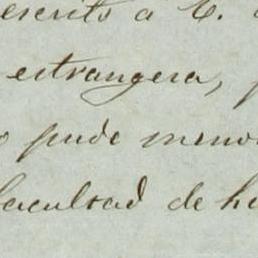 escrito á C.
estrangera,
pude meno
facultad de h